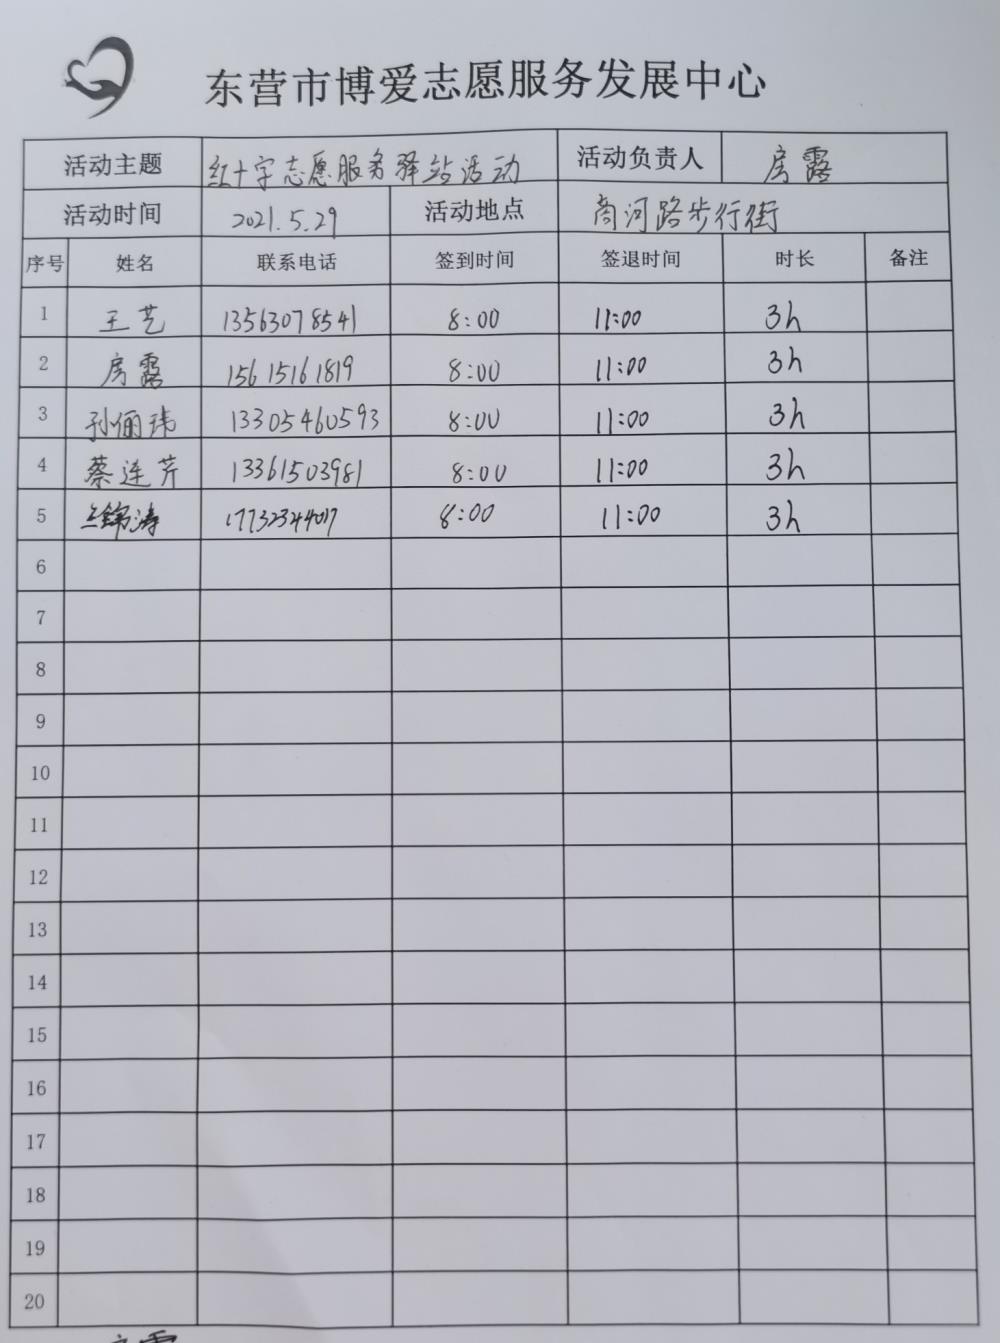 东营市博爱志愿服务发展中心
活动主题 红十字志愿服务驿站活动 活动负责人 房露
活动时间 2021.5.29 活动地点 商河路步行街
序号 姓名 联系电话 签到时间 签退时间 时长 备注
1 王艺 13563078541 8:00 11:00 3h
2 房露 15615161819 8:00 11:00 3h
3 孙俪玮 13305460593 8:00 11:00 3h
4 蔡连芹 13361503981 8:00 11:00 3h
5 17732344017 8:00 11:00 3h
6
7
8
9
10
11
12
13
14
15
16
17
18
19
20